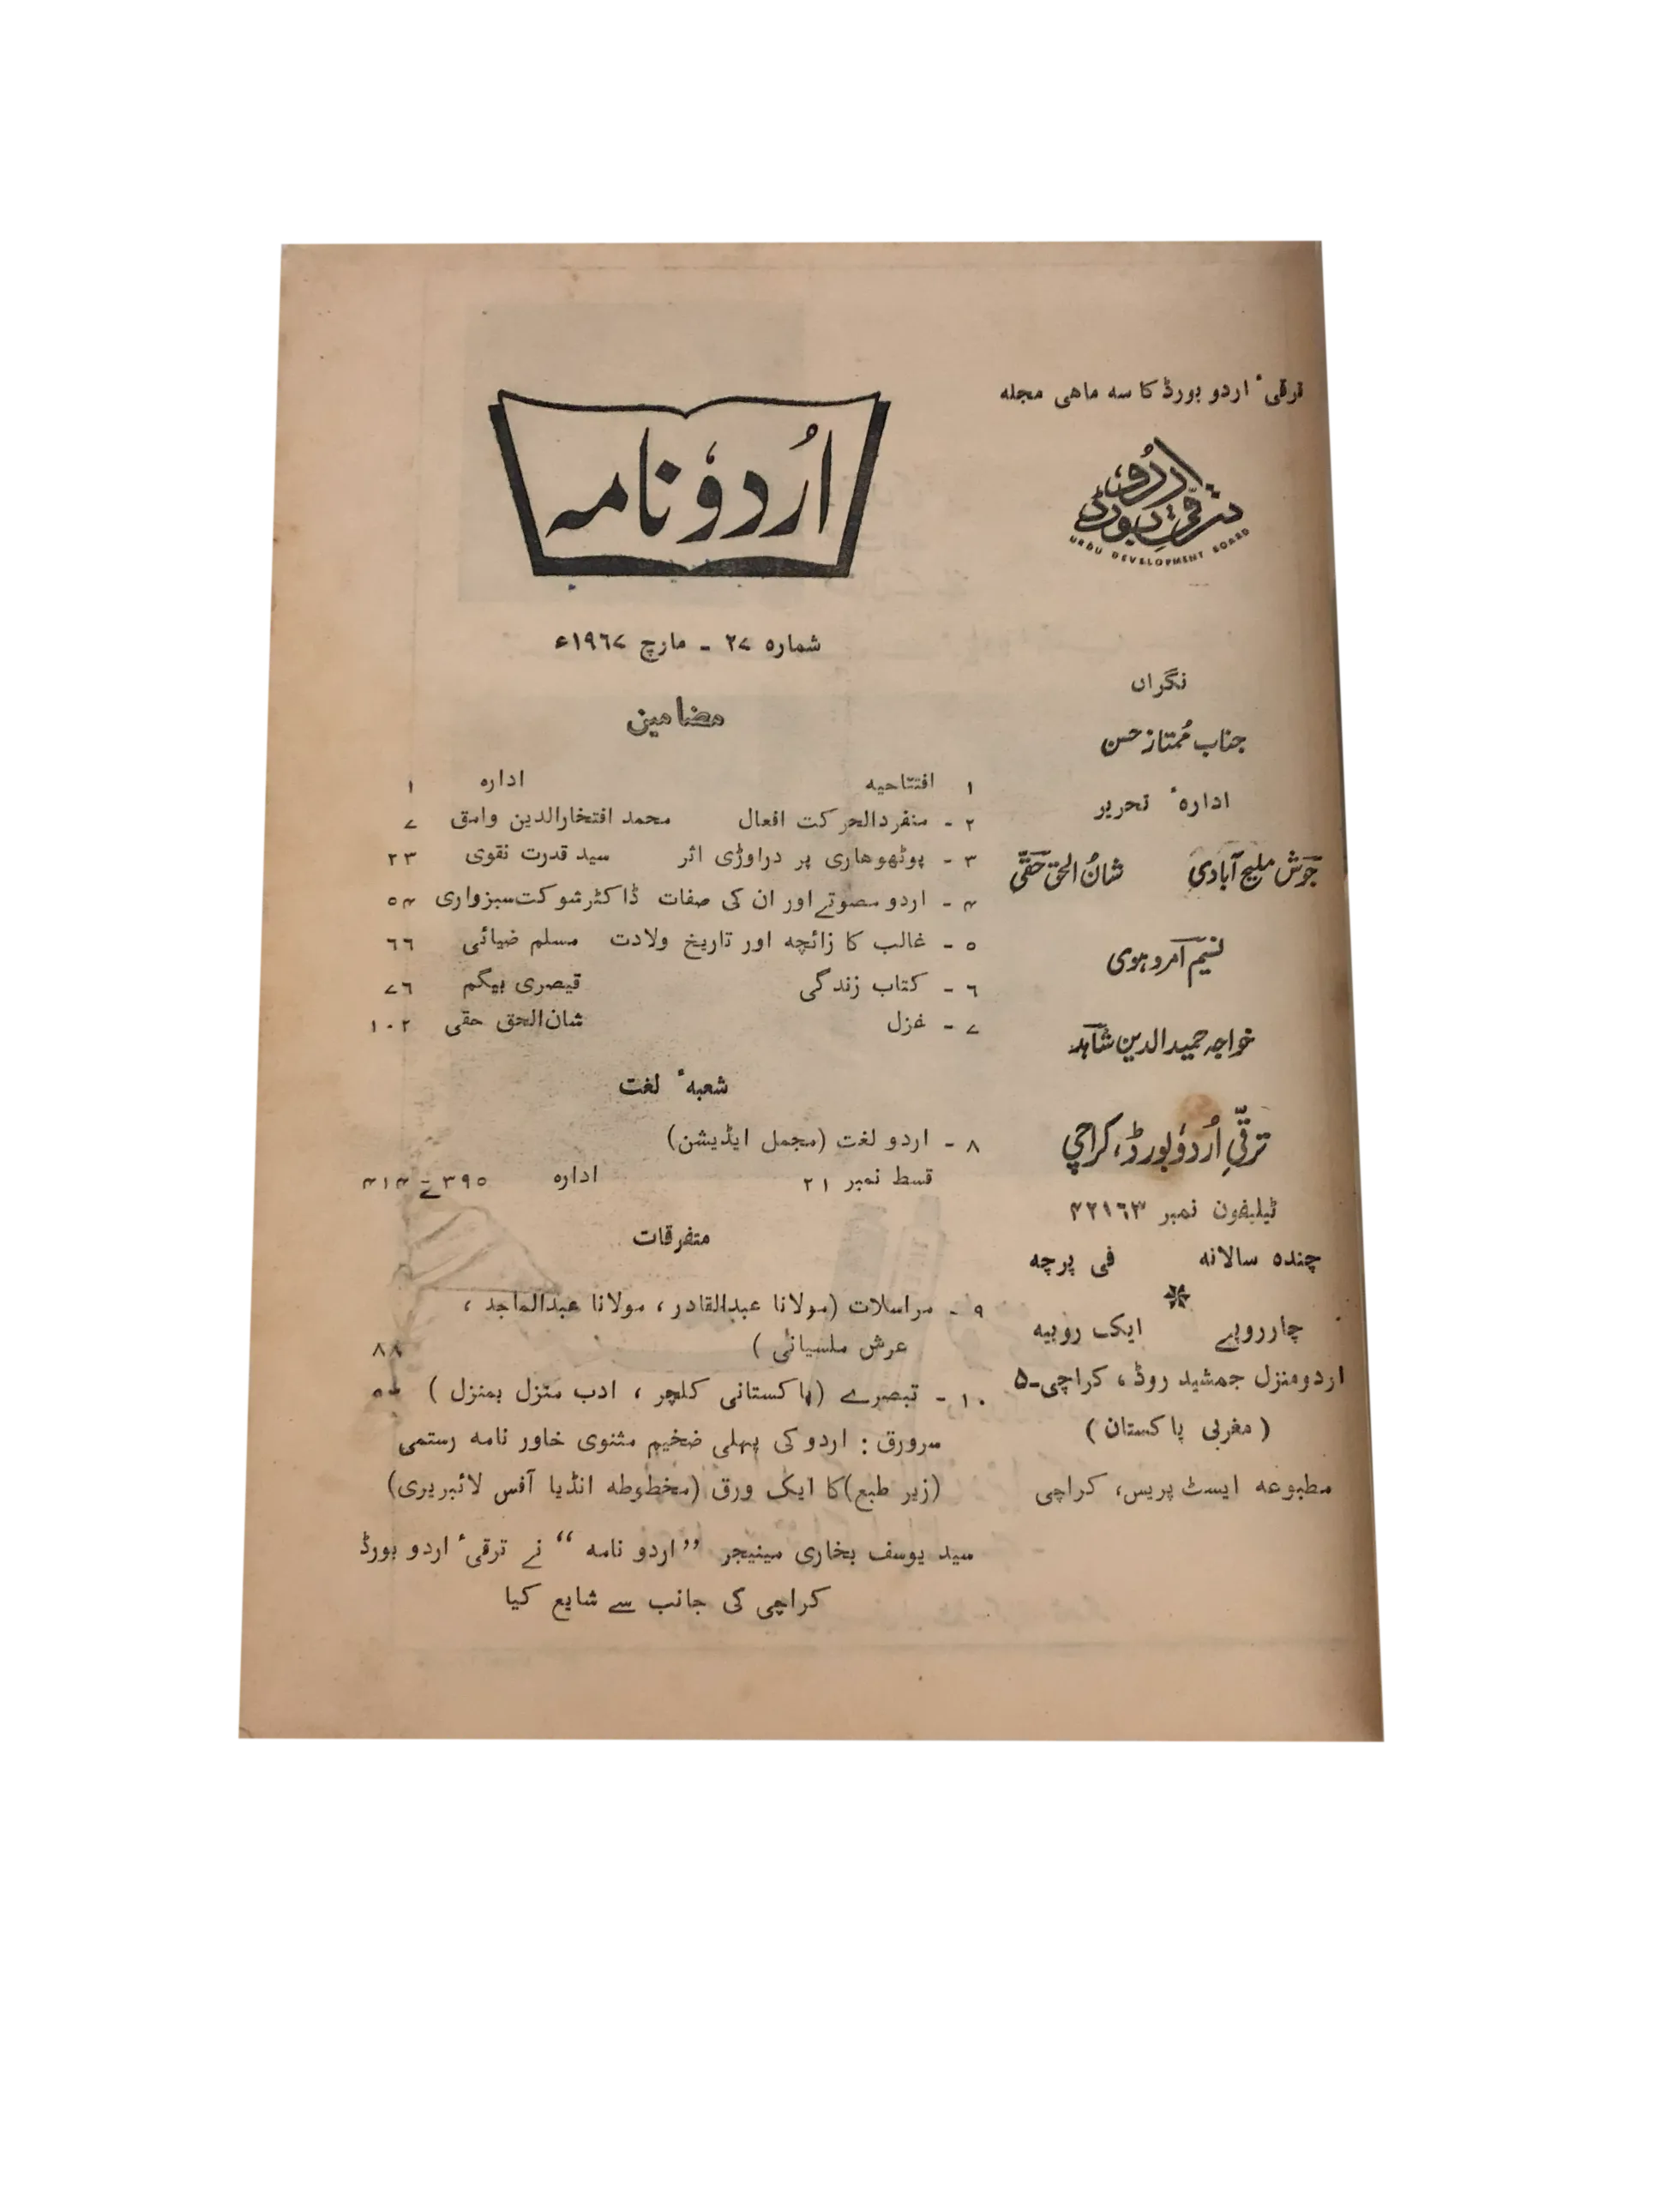 ترقیٴ اردو بورڈ کا سه ماهی مجله
ترقیِ اردو بورڈ
URDU DEVELOPMENT BOARD
نگراں
جناب مُمتاز حسن
ادارهٴ تحریر
جوش ملیح آبادی شانُ الحق حقّی
نسیم امروہوی
خواجہ حمید الدین شاہد
ترقّیِ اُردو بورڈ، کراچی
ٹیلیفون نمبر ۴۲۱۶۳
چنده سالانه فی پرچه
چار روپے ایک روپیه
اردو منزل جمشید روڈ ، کراچی۔۵
( مغربی پاکستان )
مطبوعه ایسٹ پریس، کراچی
اُردو نامہ
شماره ۲۷ - مارچ ۱۹۶۷ء
مضامین
۱ افتتاحیه اداره ۱
۲ - منفرد الحرکت افعال محمد افتخار الدین وامق ۷
۳ - پوٹھوهاری پر دراوڑی اثر سید قدرت نقوی ۲۳
۴ - اردو مصوتے اور ان کی صفات ڈاکٹر شوکت سبزواری ۵۴
۵ - غالب کا زائچه اور تاریخ ولادت مسلم ضیائی ۶۶
۶ - کتاب زندگی قیصری بیگم ۷۶
۷ - غزل شان الحق حقی ۱۰۲
شعبهٴ لغت
۸ - اردو لغت (مجمل ایڈیشن)
قسط نمبر ۲۱ اداره ۳۹۵ تے ۴۱۴
متفرقات
۹ - مراسلات (مولانا عبدالقادر ، مولانا عبدالماجد ،
عرش ملسیانی ) ۸۸
۱۰ - تبصرے (پاکستانی کلچر ، ادب منزل بمنزل )
سرورق : اردو کی پہلی ضخیم مثنوی خاور نامه رستمی
(زیر طبع) کا ایک ورق (مخطوطه انڈیا آفس لائبریری)
سید یوسف بخاری مینیجر ”اردو نامه“ نے ترقیٴ اردو بورڈ
کراچی کی جانب سے شایع کیا